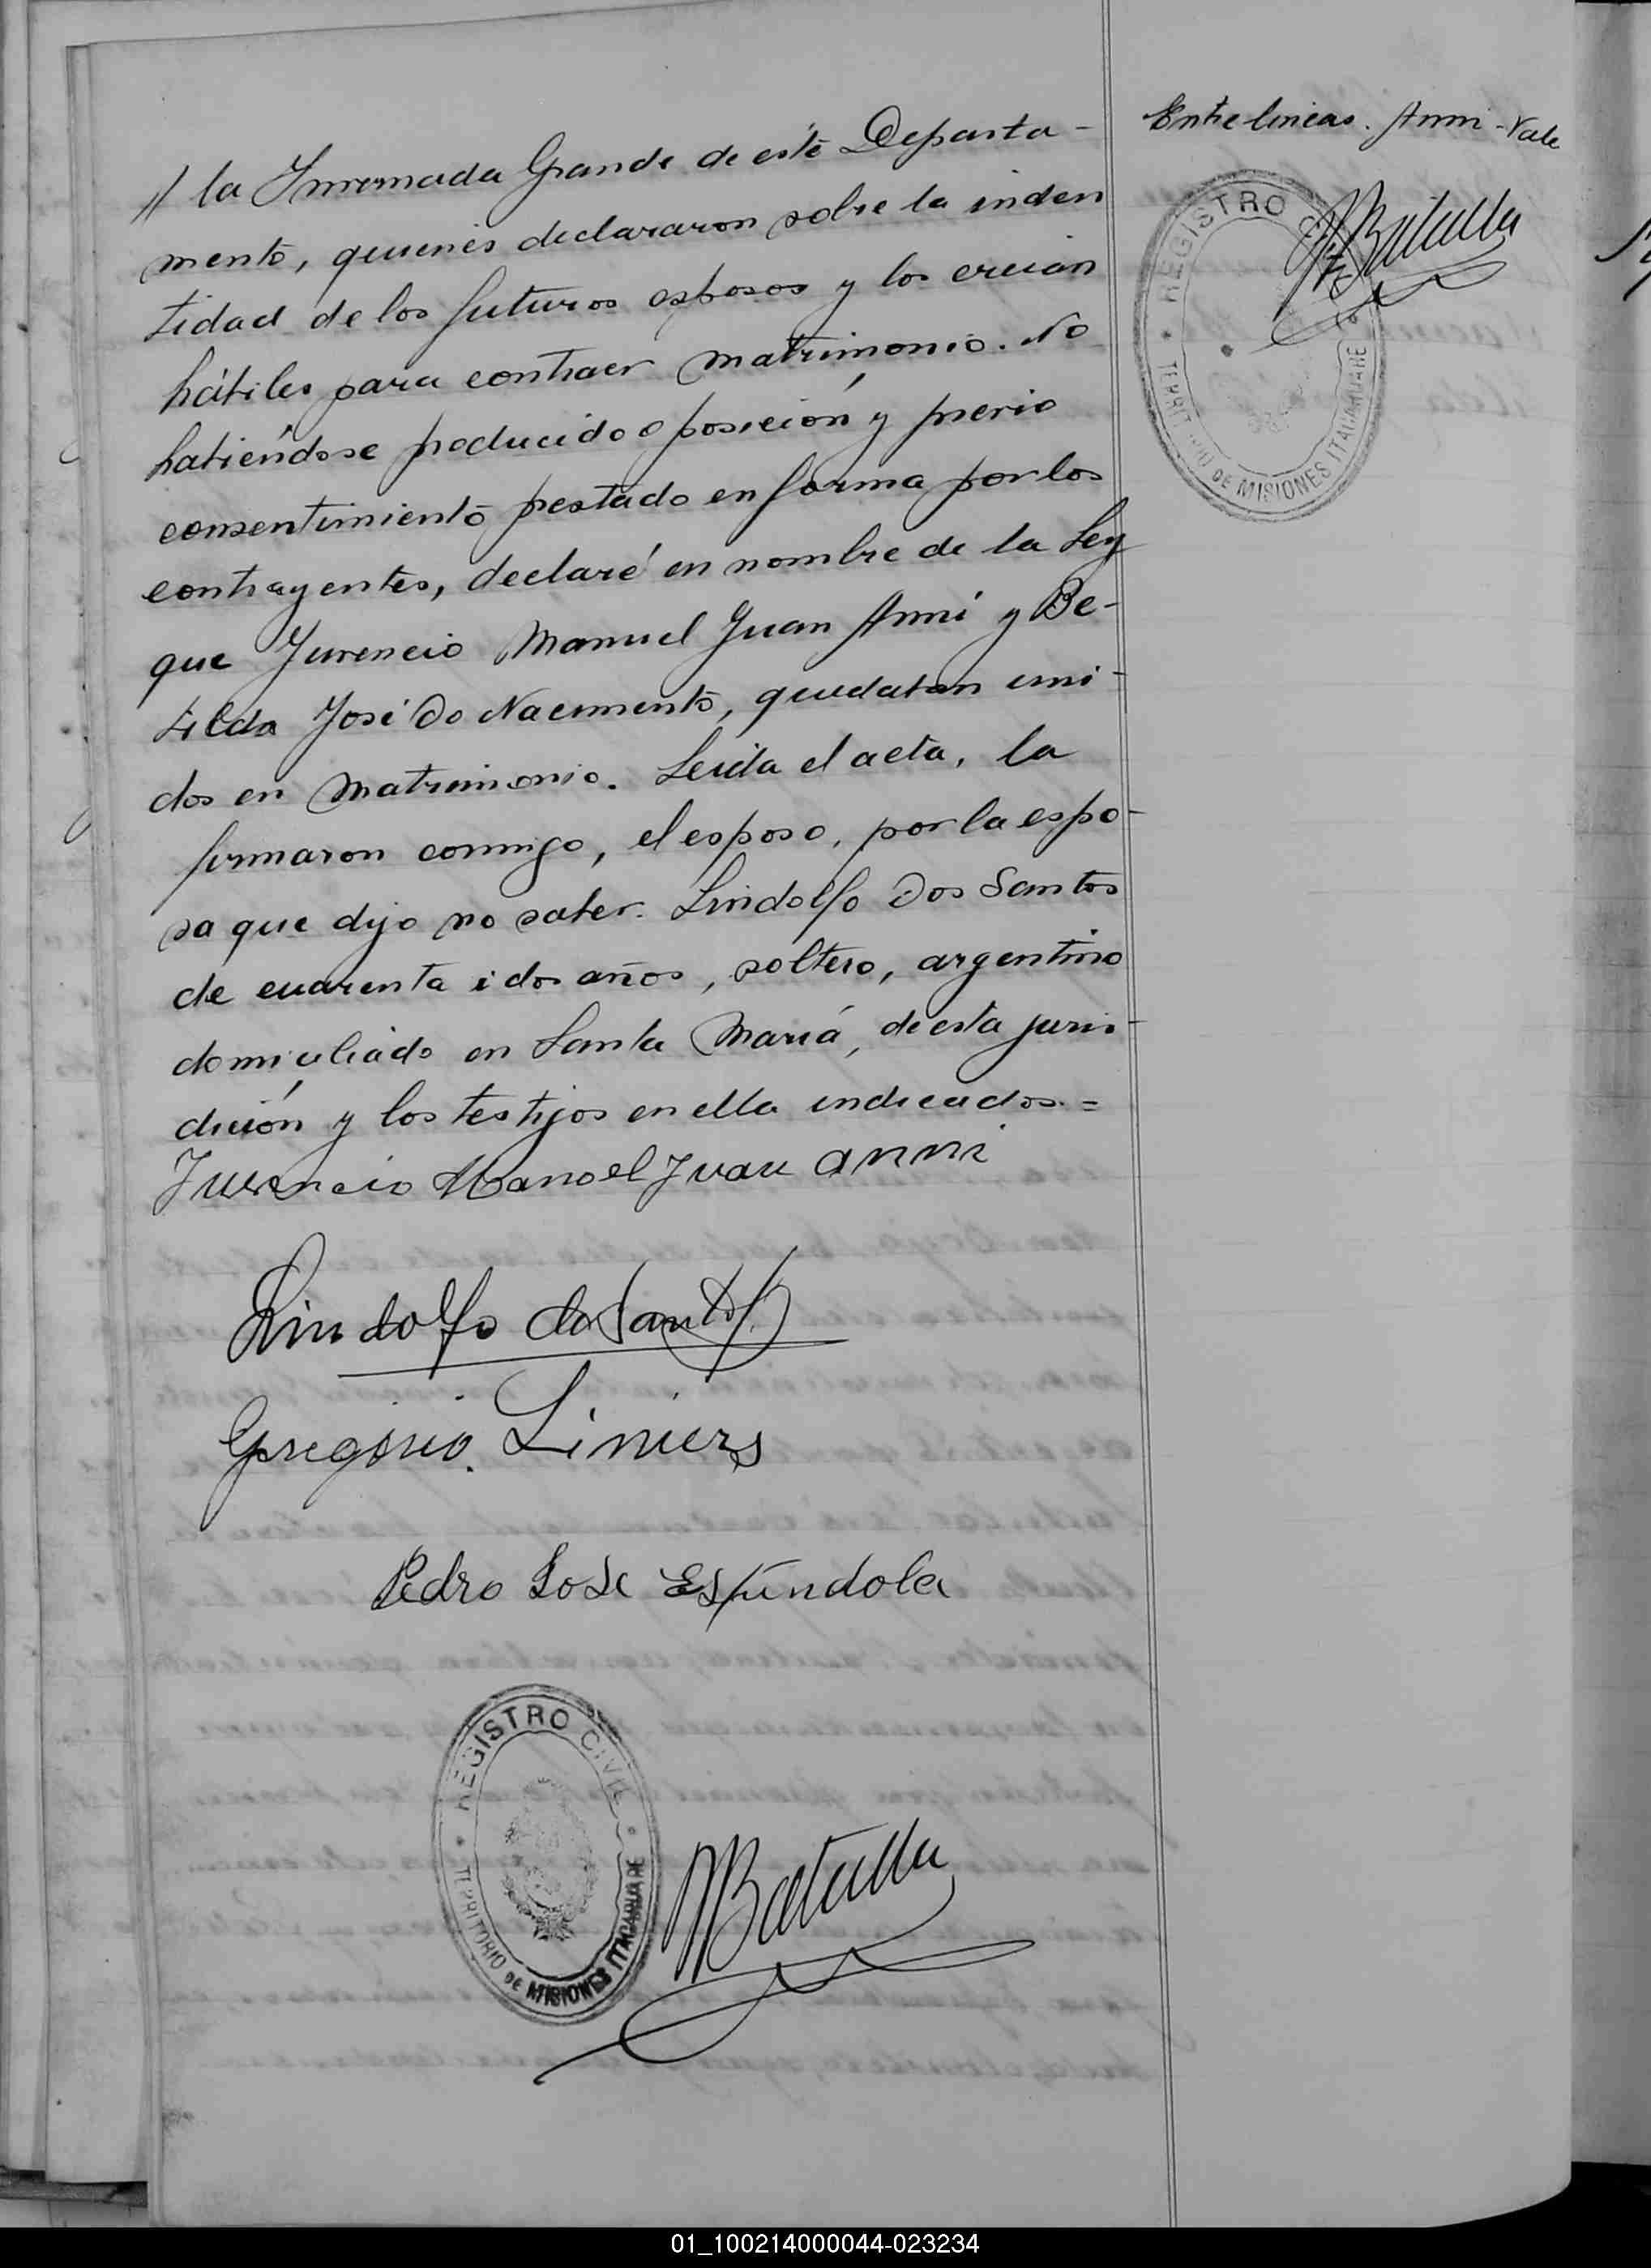 // la Invernada Grande de este Departa-
mento, quienes declararon sobre la inden
tidad de los futuros esposos y los creian
hábiles para contraer matrimonio. No
habiéndose producido oposición y previo
consentimiento prestado en forma por los
contrayentes, declaré en nombre de la Ley
que Juvencio Manuel Juan Anni y Be-
tilda José Do Nacimento, quedaban uni-
dos en matrimonio. Leida el acta, la
firmaron conmigo, el esposo, por la espo-
sa que dijo no saber. Lindolfo Dos Santos
de cuarenta i dos años, soltero, argentino
domiciliado en Santa María, de esta juris-
dición y los testijos en ella indicados.=
Juvencio Manoel Juan Anni
Lindolfo dos Santos
Gregorio. Liniers
Pedro Jose Espíndola
REGISTRO CIVIL
TERRITORIO DE MISIONES ITACARUARE
Entrelineas. Anni-Vale
REGISTRO
TERRITORIO DE MISIONES ITACARUARE
01_100214000044-023234